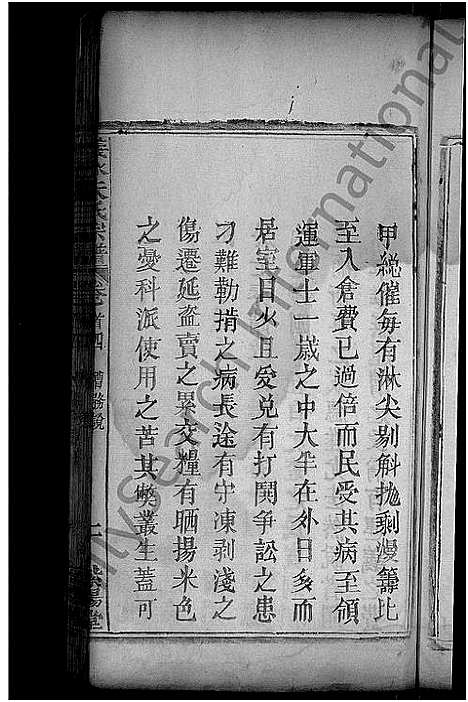 甲總催每有淋尖剔斛拋剩漫籌比
至入倉費已過倍而民受其病至領
運軍士一歲之中大半在外日多而
居室日少且爰兌有打鬨爭訟之患
刁難勒掯之病長途有守凍剥淺之
傷遷延盗賣之累交糧有晒揚米色
之憂科派使用之苦其獘叢生蓋可
氏宗譜 卷首四 漕務説
MySearch International